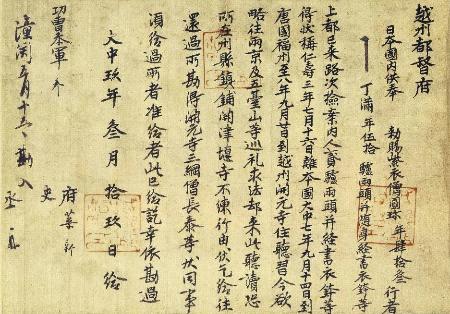 越州都督府
日本國內供奉 勅賜紫衣僧圓珍年肆拾叁 行者
丁滿年伍拾 驢兩頭并隨身經書衣鉢等
上都已來路次撿案內人貳驢兩頭并經書衣鉢等
得狀稱仁壽三年七月十六日離本國大中七年九月十四日到
唐國福州至八年九月廿日到越州開元寺住聽習今欲
略往兩京及五臺山等巡礼求法却來此聽讀恐
所在州縣鎮鋪關津堰寺不練行由伏乞給往
還過所勘得開元寺三綱僧長泰等狀同事
須給過所者准給者此已給訖幸依勘過
大中玖年叁月拾玖日給
府葉新
功曹參軍
史
潼関五月十五日勘入
丞